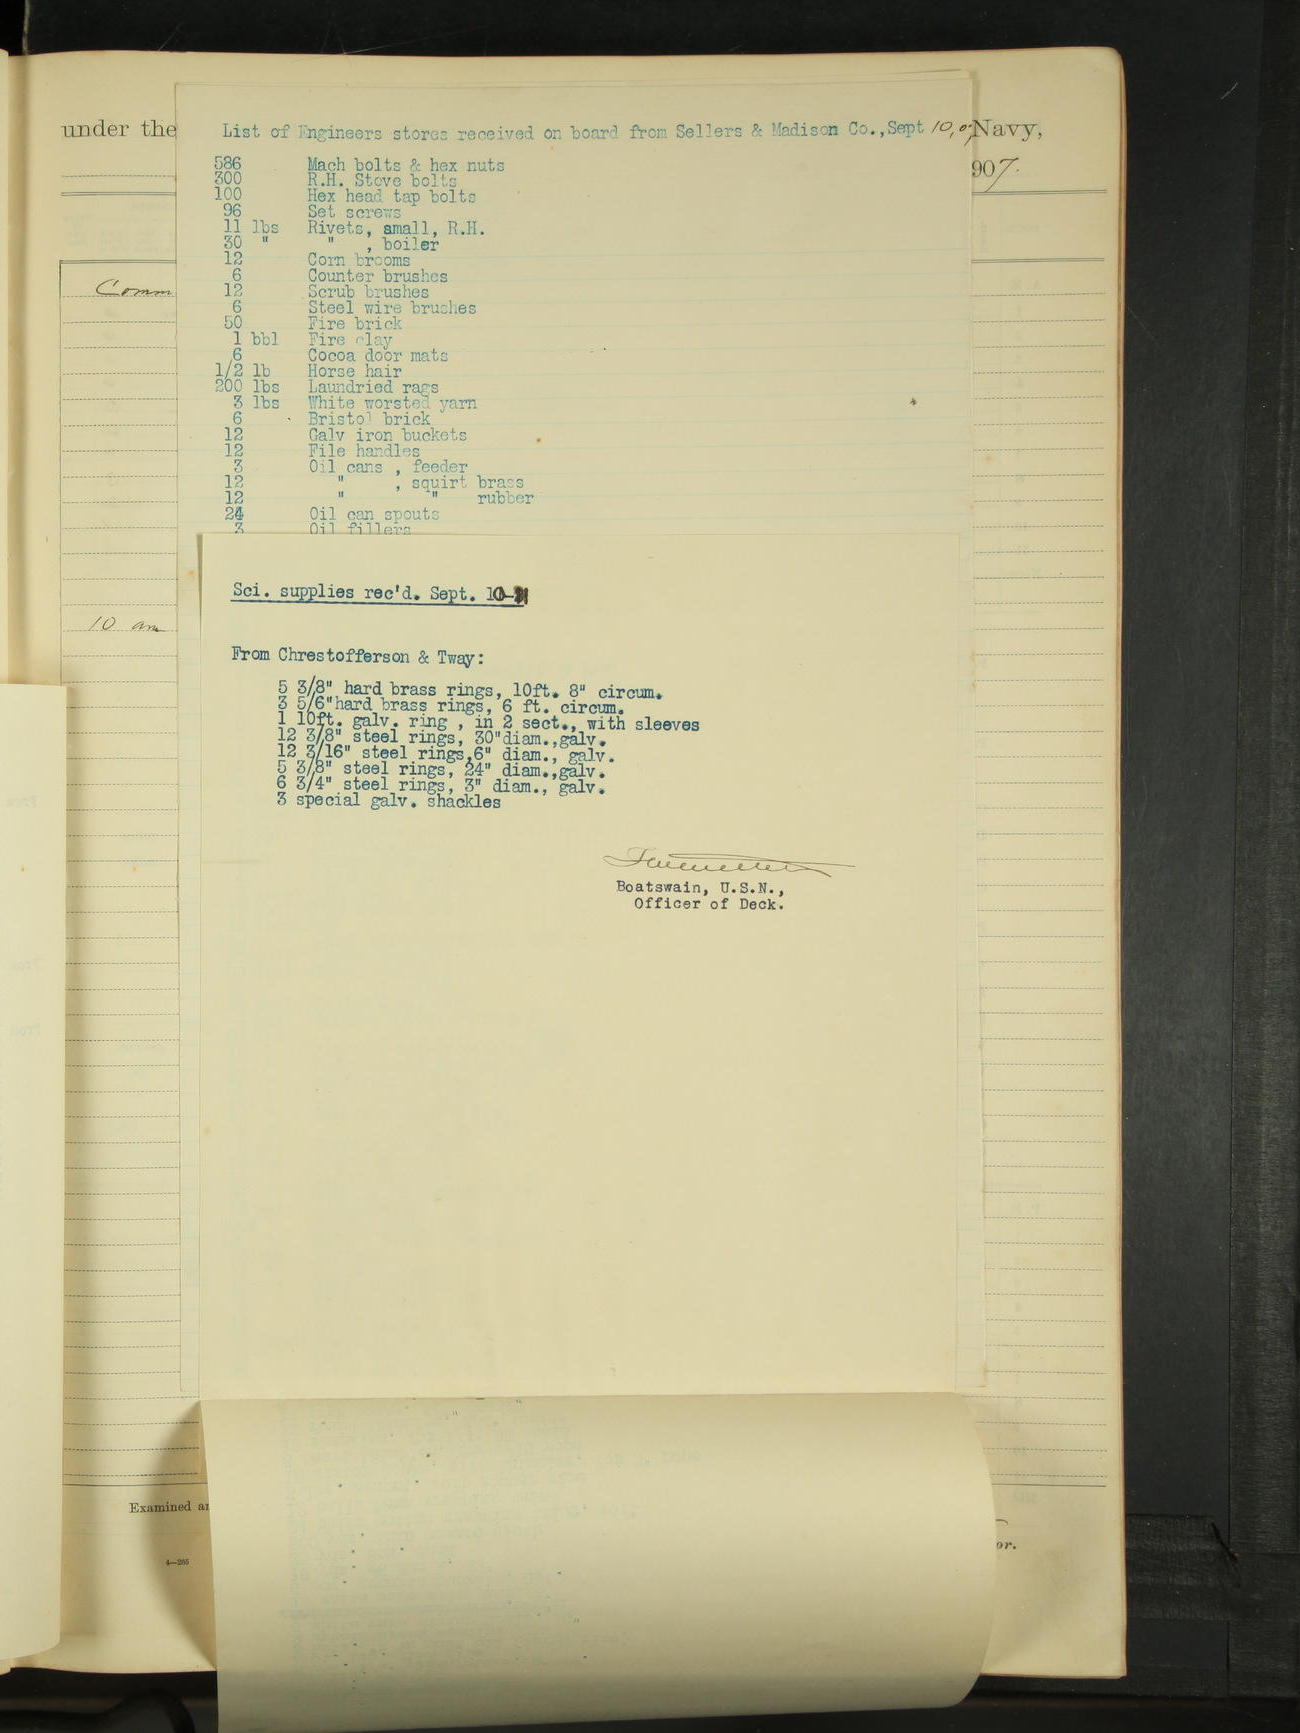 under the
Navy,
907.
Comm
10 am
List of Engineers stores received on board from Sellers & Madison Co.,Sept 10, 07
586 Mach bolts & hex nuts
300 R.H. Stove bolts
100 Hex head tap bolts
96 Set screws
11 lbs Rivets, amall, R.H.
30 " " , boiler
12 Corn brooms
6 Counter brushes
12 Scrub brushes
6 Steel wire brushes
50 Fire brick
1 bbl Fire clay
6 Cocoa door mats
1/2 lb Horse hair
200 lbs Laundried rags
3 lbs White worsted yarn
6 Bristol brick
12 Galv iron buckets
12 File handles
3 Oil cans , feeder
12 " , squirt brass
12 " " rubber
24 Oil can spouts
3 Oil fillers
Sci. supplies rec'd. Sept. 10
From Chrestofferson & Tway:
5 3/8" hard brass rings, 10ft. 8" circum.
3 5/6"hard brass rings, 6 ft. circum.
1 10ft. galv. ring , in 2 sect., with sleeves
12 3/8" steel rings, 30"diam.,galv.
12 3/16" steel rings,6" diam., galv.
5 3/8" steel rings, 24" diam.,galv.
6 3/4" steel rings, 3" diam., galv.
3 special galv. shackles
Boatswain, U.S.N.,
Officer of Deck.
Examined an
or.
4—265